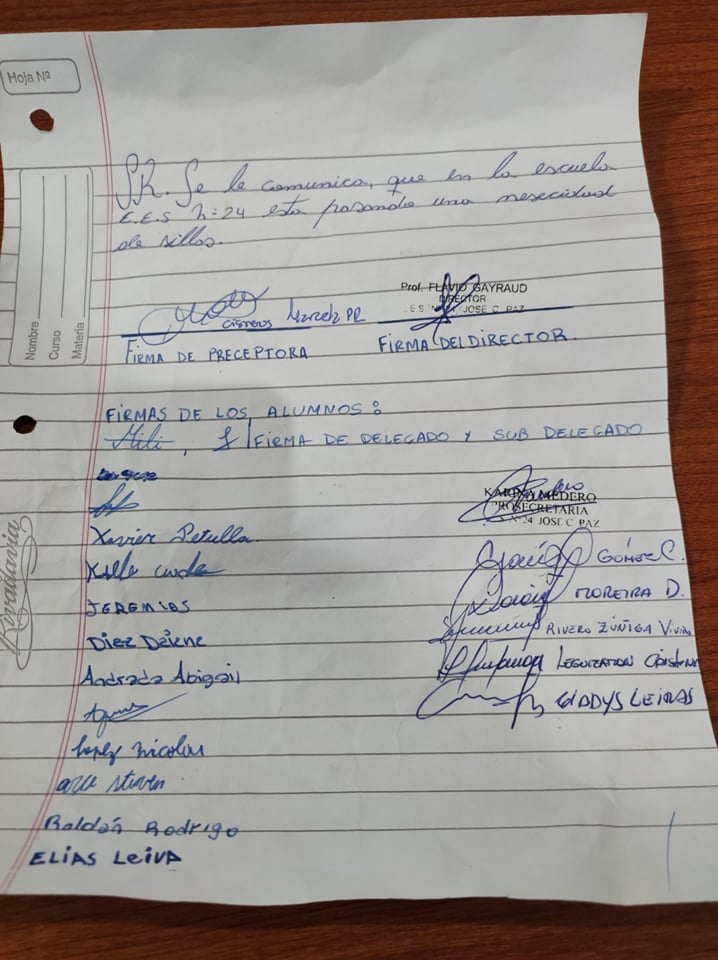 Hoja Nº
Nombre
Curso
Materia
Rivadavia
SR. Se le comunica, que en la escuela
E.E.S N=24 esta pasando una nesecidad
de sillas.
Prof. FLAVIO GAYRAUD
DIRECTOR
JOSE C. PAZ
cisneros Marcela PR
FIRMA DE PRECEPTORA
FIRMA DEL DIRECTOR.
FIRMAS DE LOS ALUMNOS:
Mili, FIRMA DE DELEGADO Y SUB DELEGADO
KARINA MEDERO
PROSECRETARIA
Nº24 JOSE C. PAZ
Xavier Petulla.
GÓMEZ C.
JEREMIAS
MOREIRA D.
Diez Daiene
RIVERO ZÚÑIGA
Andrada Abigail
LEGUIZAMON
GLADYS LEIVAS
Lopez nicolas
arce stiven
Roldán Rodrigo
ELIAS LEIVA